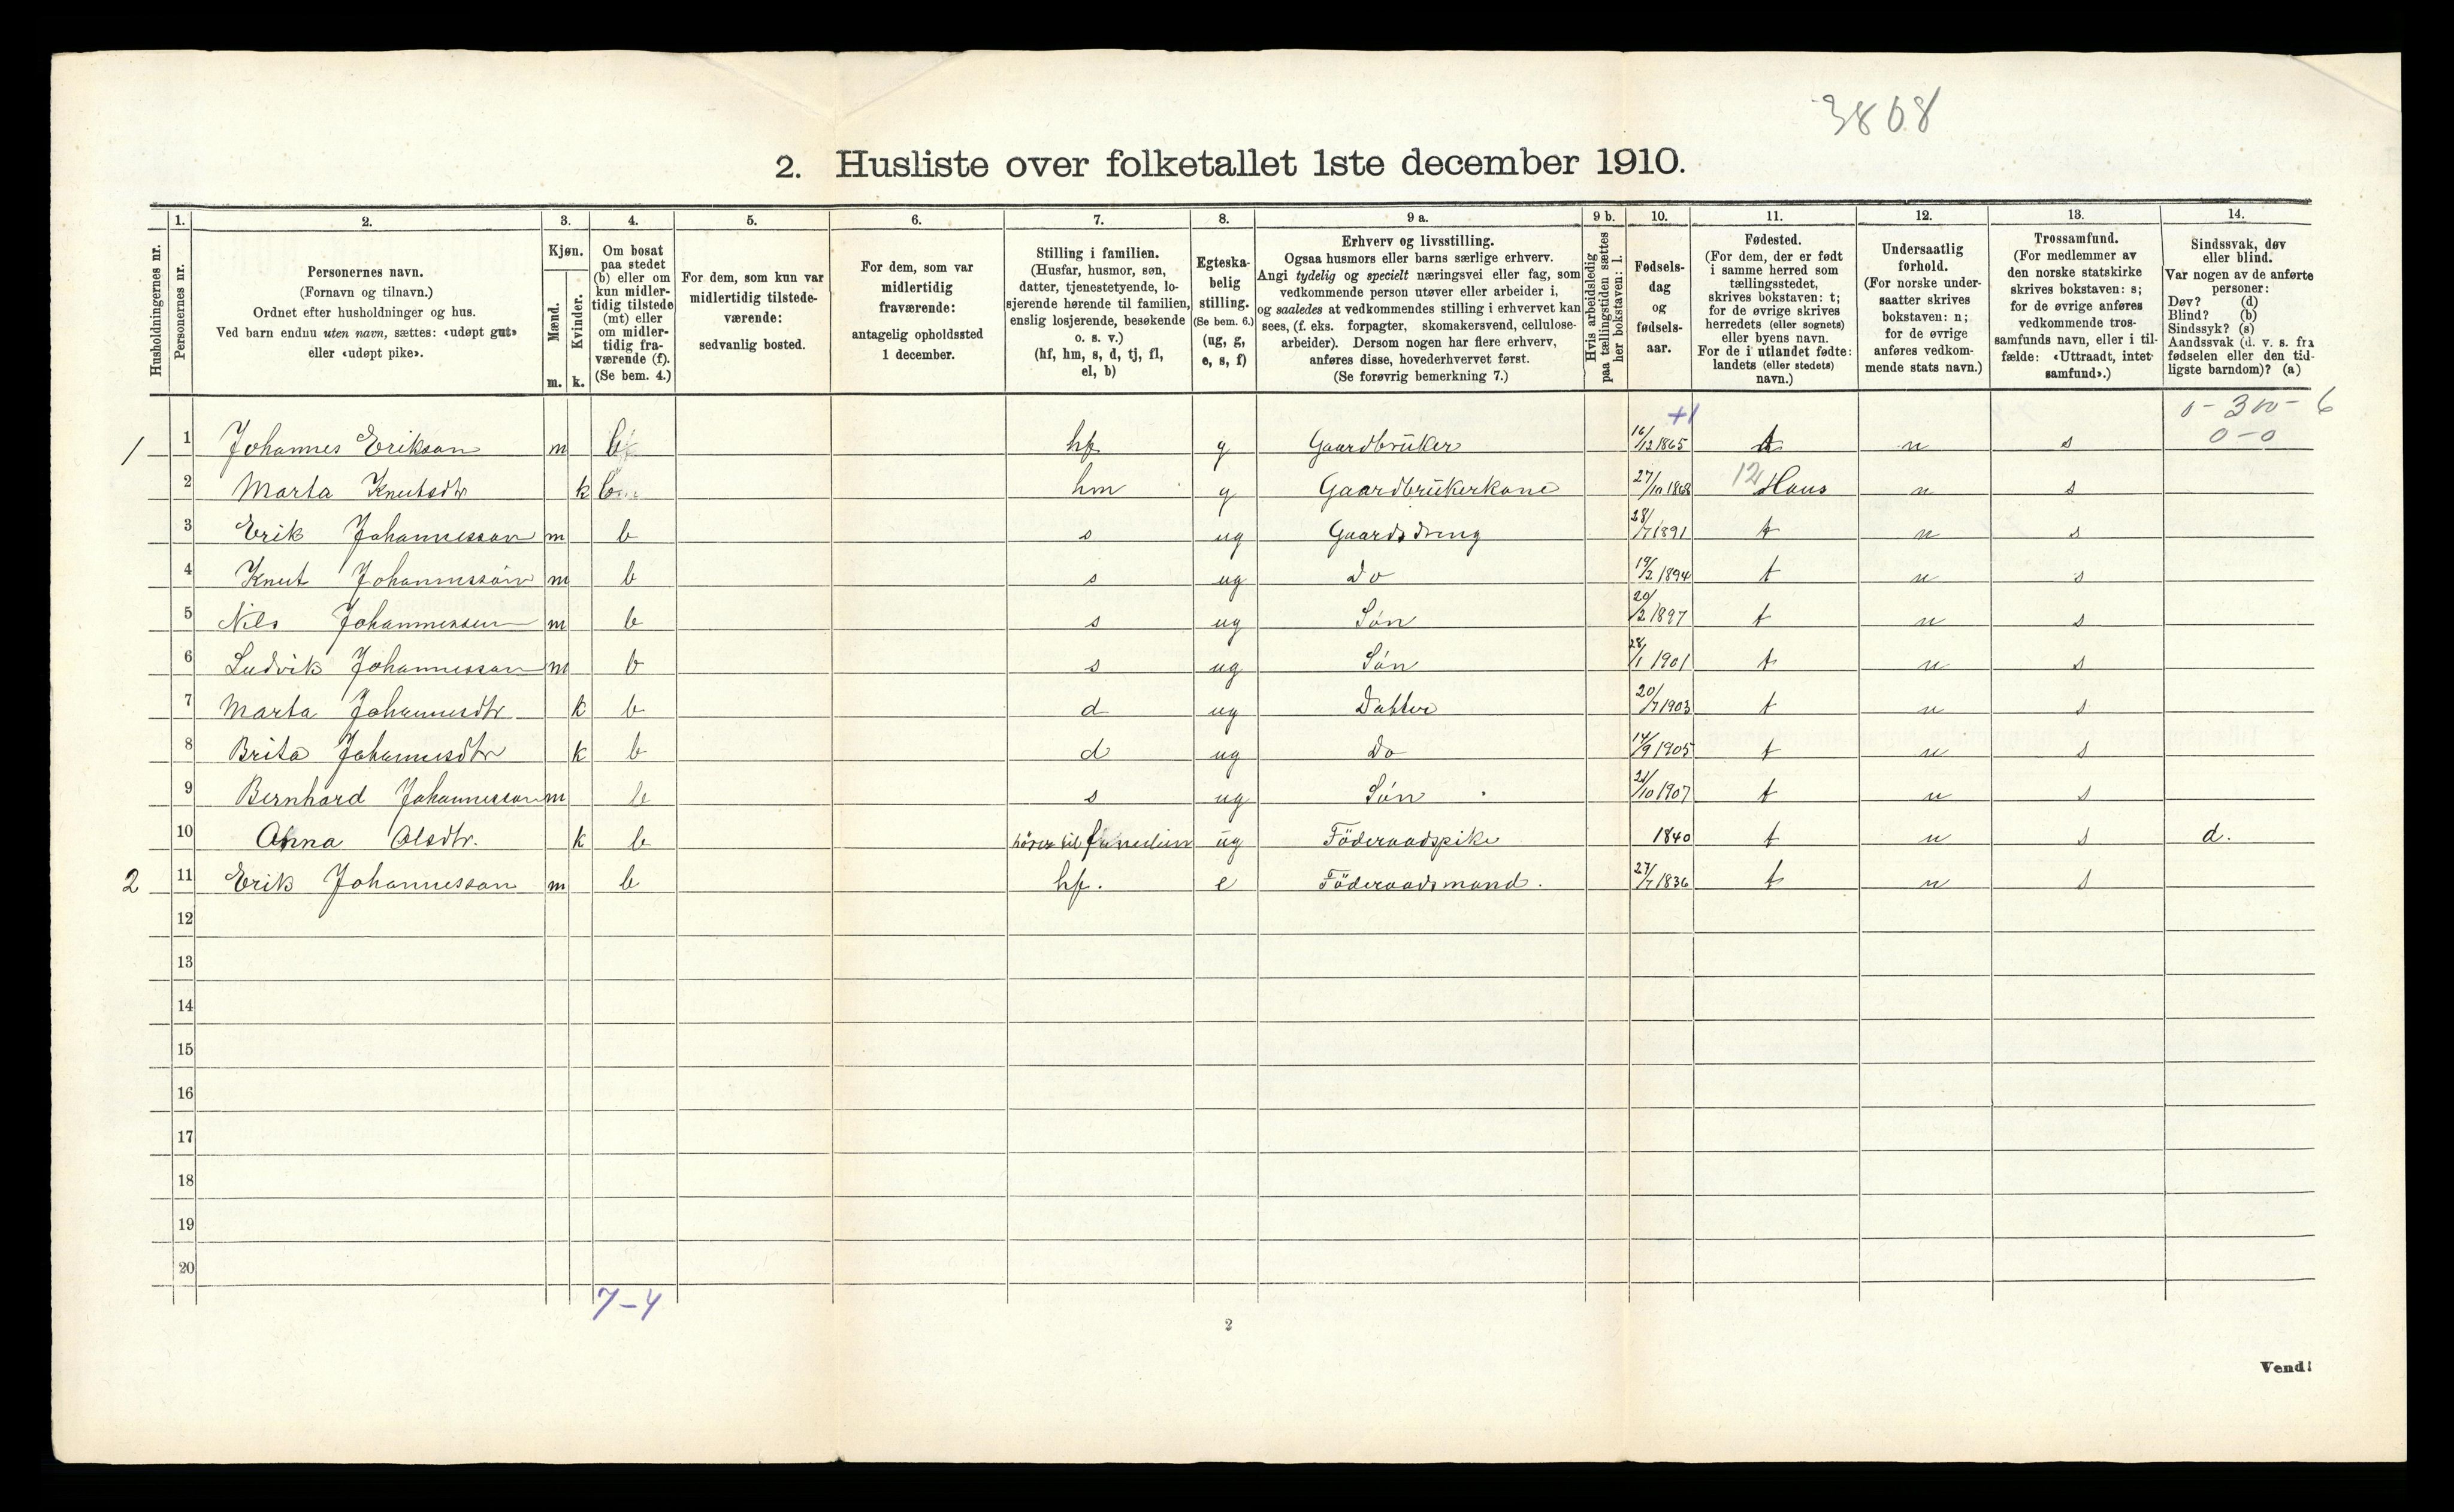 3808
2. Husliste over folketallet 1ste december 1910.
1. 2. 3. 4. 5. 6. 7. 8. 9 a. 9 b. 10. 11. 12. 13. 14.
Husholdningernes nr.
Personernes nr.
Personernes navn.
(Fornavn og tilnavn.)
Ordnet efter husholdninger og hus.
Ved barn endnu uten navn, sættes: «udøpt gut»
eller «udøpt pike».
Kjøn.
Mænd.
Kvinder.
m. k.
Om bosat
paa stedet
(b) eller om
kun midler-
tidig tilstede
(mt) eller
om midler-
tidig fra-
værende (f).
(Se bem. 4.)
For dem, som kun var
midlertidig tilstede-
værende:
sedvanlig bosted.
For dem, som var
midlertidig
fraværende:
antagelig opholdssted
1 december.
Stilling i familien.
(Husfar, husmor, søn,
datter, tjenestetyende, lo-
sjerende hørende til familien,
enslig losjerende, besøkende
o. s. v.)
(hf, hm, s, d, tj, fl,
el, b)
Egteska-
belig
stilling.
(Se bem. 6.)
(ug, g,
e, s, f)
Erhverv og livsstilling.
Ogsaa husmors eller barns særlige erhverv.
Angi tydelig og specielt næringsvei eller fag, som
vedkommende person utøver eller arbeider i,
og saaledes at vedkommendes stilling i erhvervet kan
sees, (f. eks. forpagter, skomakersvend, cellulose-
arbeider). Dersom nogen har flere erhverv,
anføres disse, hovederhvervet først.
(Se forøvrig bemerkning 7.)
Hvis arbeidsledig
paa tællingstiden sættes
her bokstaven: l.
Fødsels-
dag
og
fødsels-
aar.
Fødested.
(For dem, der er født
i samme herred som
tællingsstedet,
skrives bokstaven: t;
for de øvrige skrives
herredets (eller sognets)
eller byens navn.
For de i utlandet fødte:
landets (eller stedets)
navn.)
Undersaatlig
forhold.
(For norske under-
saatter skrives
bokstaven: n;
for de øvrige
anføres vedkom-
mende stats navn.)
Trossamfund.
(For medlemmer av
den norske statskirke
skrives bokstaven: s;
for de øvrige anføres
vedkommende tros-
samfunds navn, eller i til-
fælde: «Uttraadt, intet
samfund».)
Sindssvak, døv
eller blind.
Var nogen av de anførte
personer:
Døv? (d)
Blind? (b)
Sindssyk? (s)
Aandssvak (d. v. s. fra
fødselen eller den tid-
ligste barndom)? (a)
+1
0-0
1 1 Johannes Erikson m b hf g Gaardbrüker 16/12 1865 t n s
2 Marta Knutsdtr k b hm g Gaardbrükerkone 27/10 1868 12 Haus n s
3 Erik Johannesson m b s ug Gaardsdreng 28/7 1891 t n s
4 Knut Johannesson m b s ug do 19/2 1894 t n s
5 Nils Johannessen m b s ug Søn 20/2 1897 t n s
6 Ludvik Johannesson m b s ug Søn 28/1 1901 t n s
7 Marta Johannesdtr k b d ug Datter 20/7 1903 t n s
8 Brita Johannesdtr k b d ug Do 14/9 1905 t n s
9 Bernhard Johannesson m b s ug Søn 21/10 1907 t n s
10 Anna Olsdtr. k b hörer til familien ug Föderaadspike 1840 t n s d.
2 11 Erik Johannesson m b hf. e Föderaadsmand. 27/7 1836 t n s
12
13
14
15
16
17
18
19
20
7-4
2
Vend!